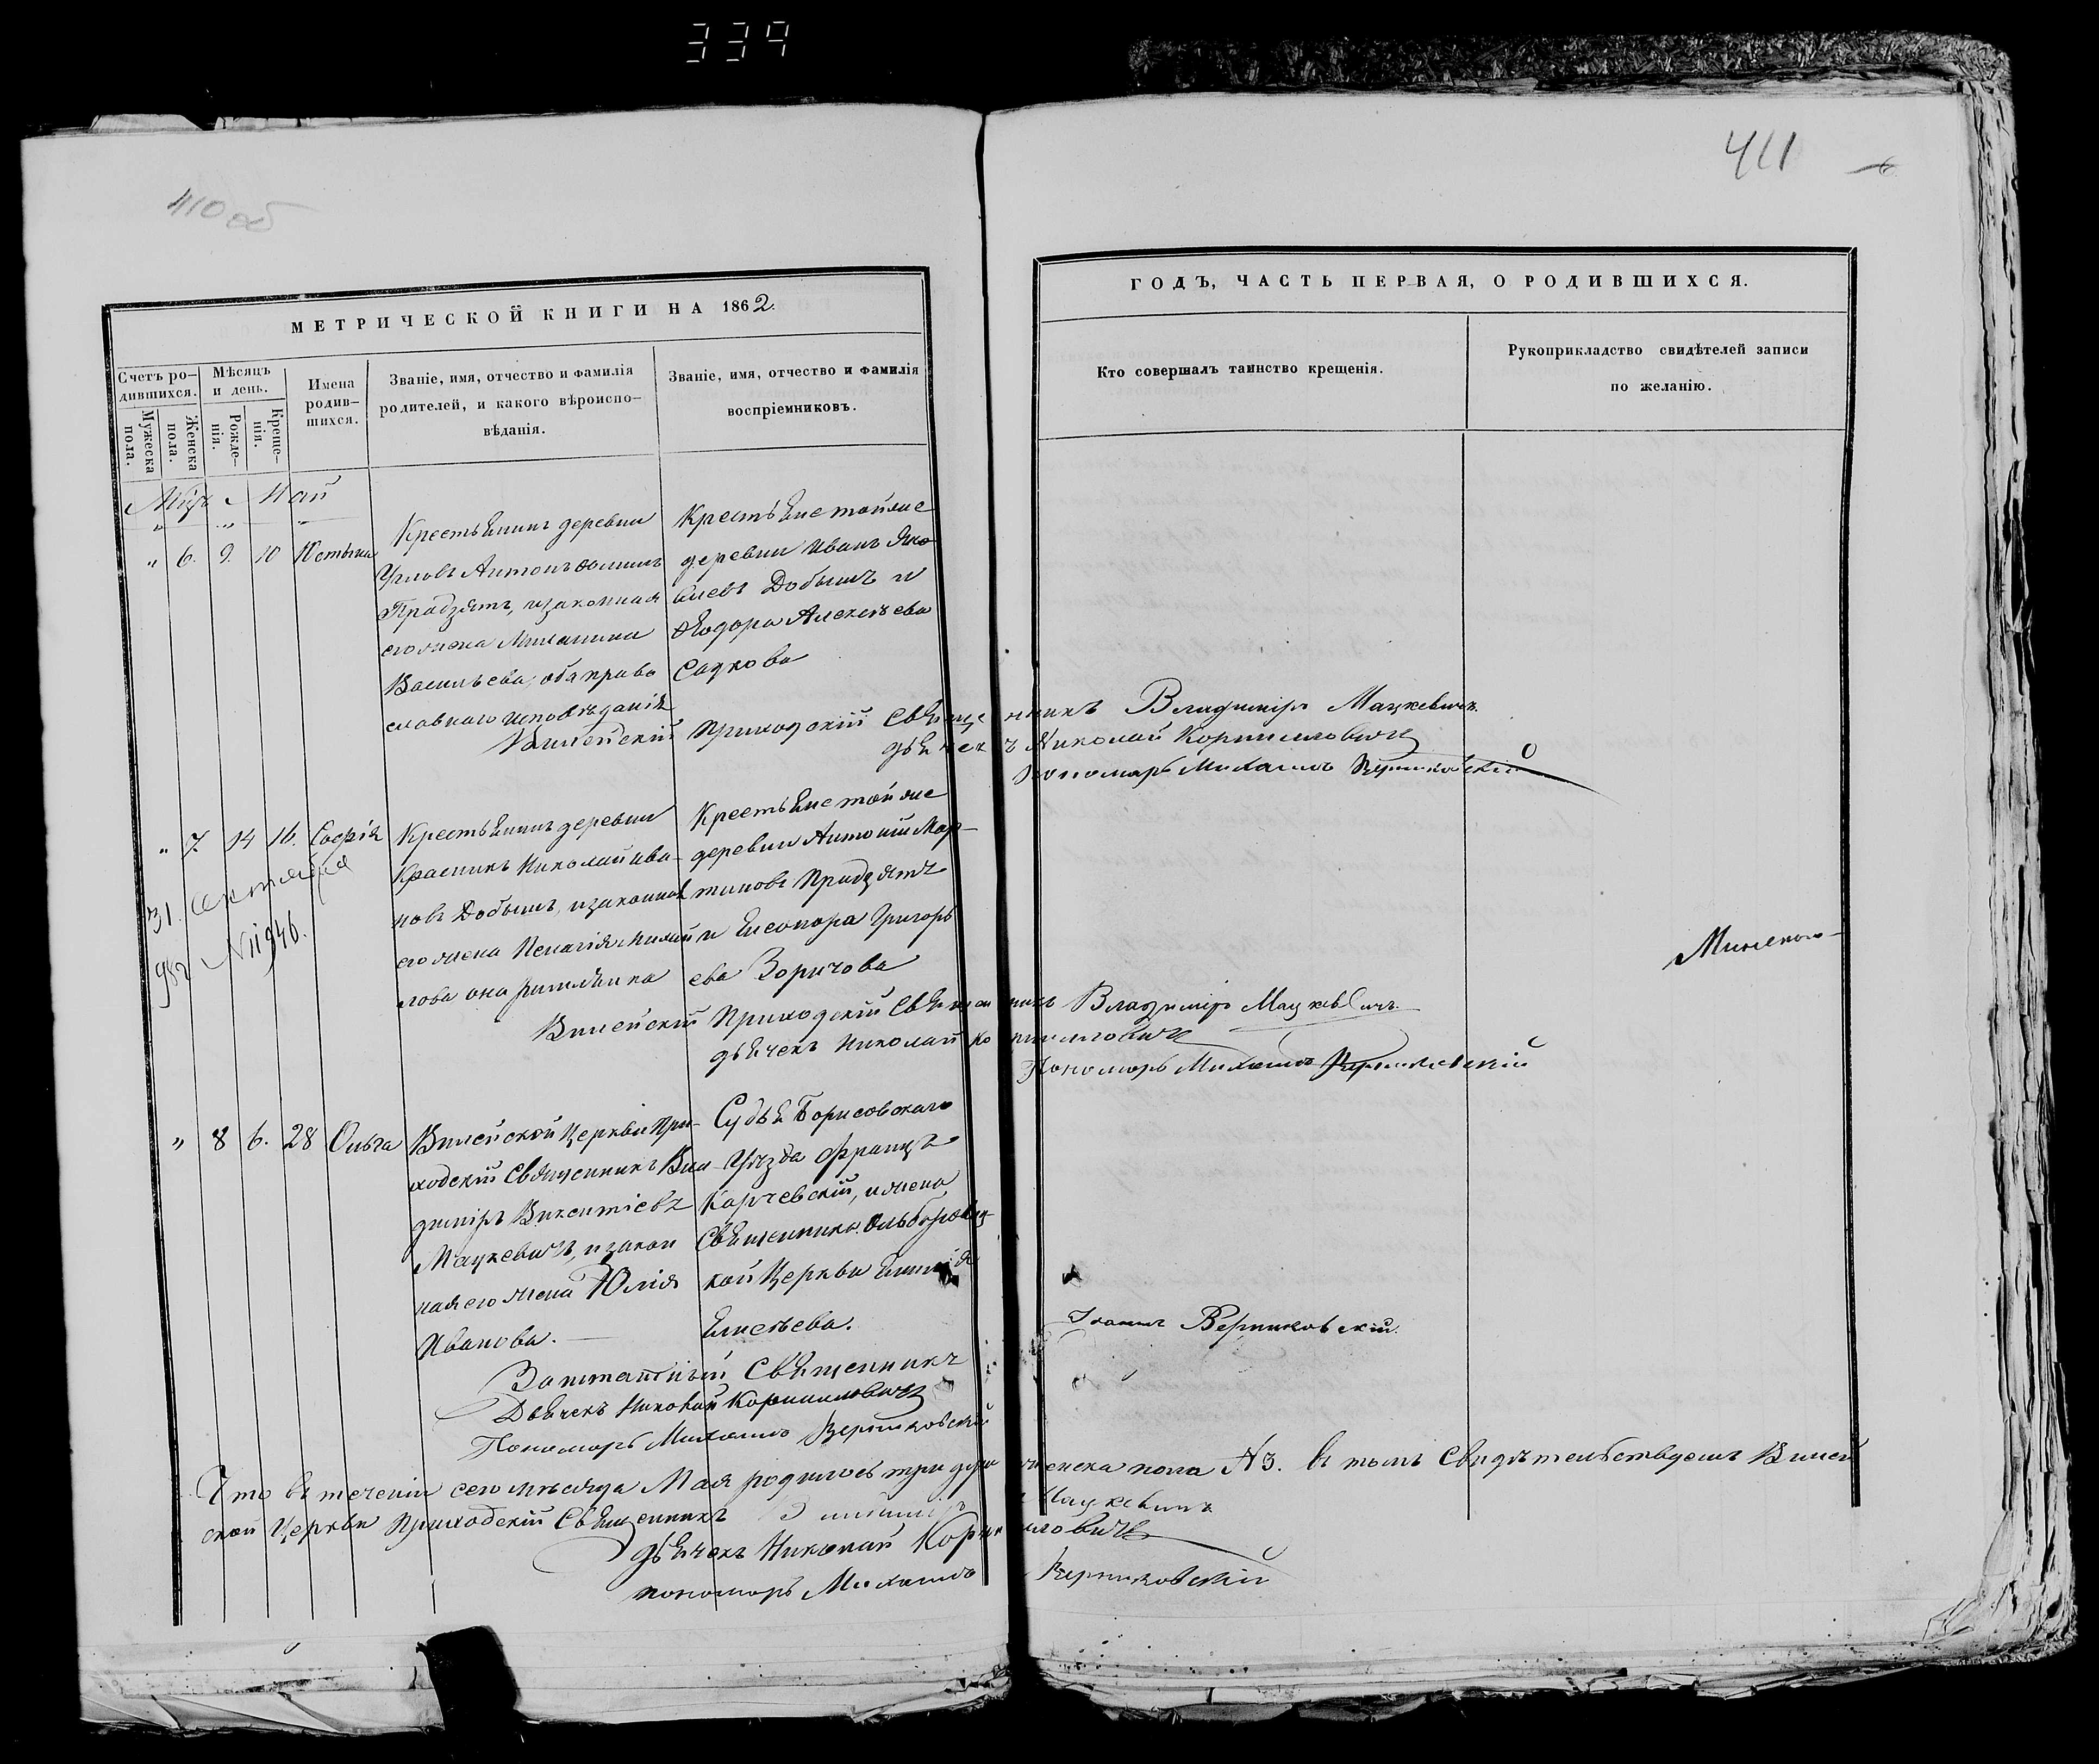 339
410 об
411
МЕТРИЧЕСКОЙ КНИГИ НА 1862.
Счетъ ро-
дившихся.
Мужеска
пола.
Женска
пола.
Мѣсяцъ
и день.
Рожде-
нія.
Креще-
нія.
Имена
родив-
шихся.
Званіе, имя, отчество и фамилія
родителей, и какого вѣроиспо-
вѣданія.
Званіе, имя, отчество и фамилія
воспріемниковъ.
ГОДЪ, ЧАСТЬ ПЕРВАЯ, О РОДИВШИХСЯ.
Кто совершалъ таинство крещенія.
Рукоприкладство свидѣтелей записи
по желанію.
Май
" 6. 9. 10 Юстына
Крестьянинъ деревни
Антонъ Ѳоминъ
Прадзятъ, и законная
его жена
Васильева, оба право
славнаго исповѣданія
Крестьяне тойже
деревни Иванъ Яко
влевъ Добышъ и
Ѳеодора Алексѣева
Садкова
Вилейскій Приходскій Священникъ Владиміръ Мацкевичъ
дьячекъ Николай Корниловичъ
Пономарь Михаилъ Верниковскій
" 7. 14 16. Софія
31. октября
982 N 11946.
Крестьянинъ деревни
Красникъ Николай Ива-
новъ Добышъ, и законная
его жена Пелагія Михай
лова она римлянка
Крестьяне тойже
деревни Антоній Мар-
тиновъ Прадзятъ
и Елеонора Григорь
ева Зоричова
Вилейскій Приходскій Священникъ Владиміръ Мацкевичъ
дьячекъ Николай Корниловичъ
Пономарь Михаилъ Верниковскій
" 8 6. 28 Ольга
Вилейской Церкви При-
ходскій Священникъ Вла-
диміръ Викентіевъ
Мацкевичъ, и закон
ная его жена Юлія
Иванова.
Судья Борисовскаго
Уѣзда Францъ
Карчевскій, и жена
Священника
кой Церкви Емилія
Елисѣева.
Заштатный Священникъ Іоаннъ Верниковскій.
Дьячекъ Николай Корниловичъ
Пономарь Михаилъ Верниковскій
Что въ теченіи сего мѣсяца Мая родилось три душ женска пола N 3. въ томъ Свидѣтельствуетъ Вилей
ской Церкви Приходскій Священникъ Мацкевичъ
дьячекъ Николай Корниловичъ
пономарь Михаилъ Верниковскій